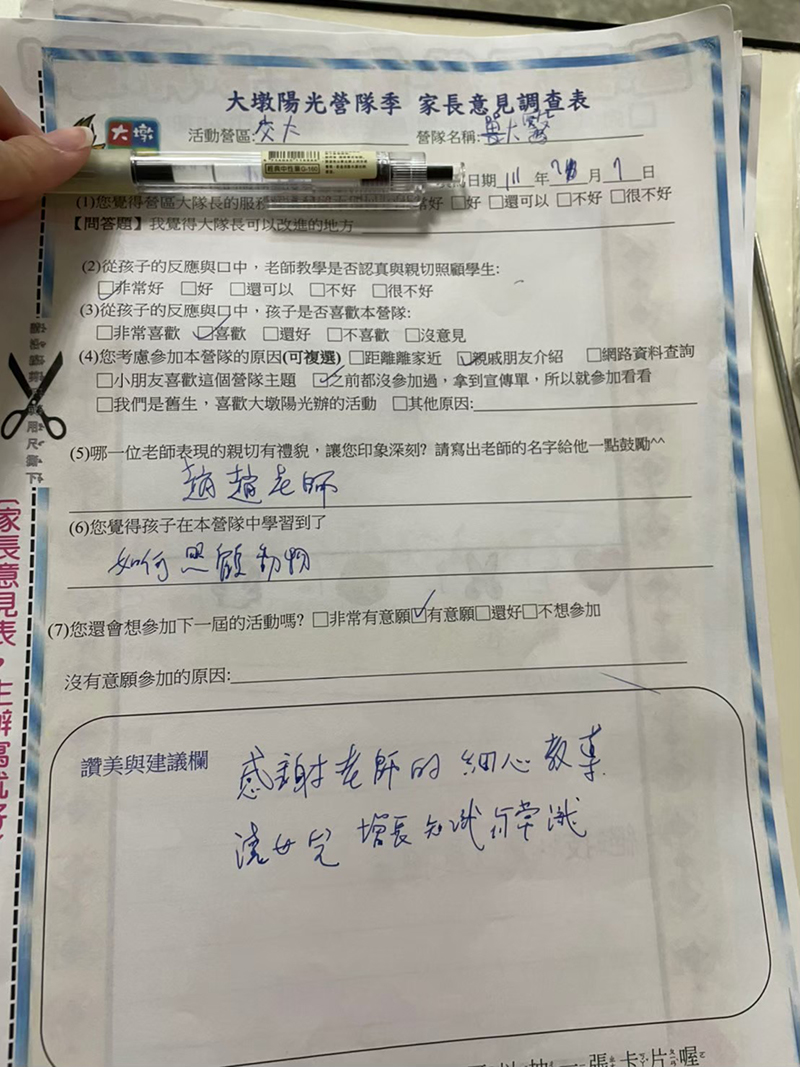 大墩陽光營隊季 家長意見調查表
大墩
活動營區:交大 營隊名稱:獸大醫
日期111年 月7日
(1)您覺得營區大隊長的服務 常好 □好 □還可以 □不好 □很不好
【問答題】我覺得大隊長可以改進的地方
(2)從孩子的反應與口中，老師教學是否認真與親切照顧學生:
☑非常好 □好 □還可以 □不好 □很不好
(3)從孩子的反應與口中，孩子是否喜歡本營隊:
□非常喜歡 ☑喜歡 □還好 □不喜歡 □沒意見
(4)您考慮參加本營隊的原因(可複選) □距離離家近 ☑親戚朋友介紹 □網路資料查詢
□小朋友喜歡這個營隊主題 ☑之前都沒參加過，拿到宣傳單，所以就參加看看
□我們是舊生，喜歡大墩陽光辦的活動 □其他原因:
(5)哪一位老師表現的親切有禮貌，讓您印象深刻? 請寫出老師的名字給他一點鼓勵^^
趙趙老師
(6)您覺得孩子在本營隊中學習到了
如何照顧動物
(7)您還會想參加下一屆的活動嗎? □非常有意願 ☑有意願 □還好 □不想參加
沒有意願參加的原因:
讚美與建議欄
感謝老師的細心教導
讓女兒增長知識和常識
一張卡片喔